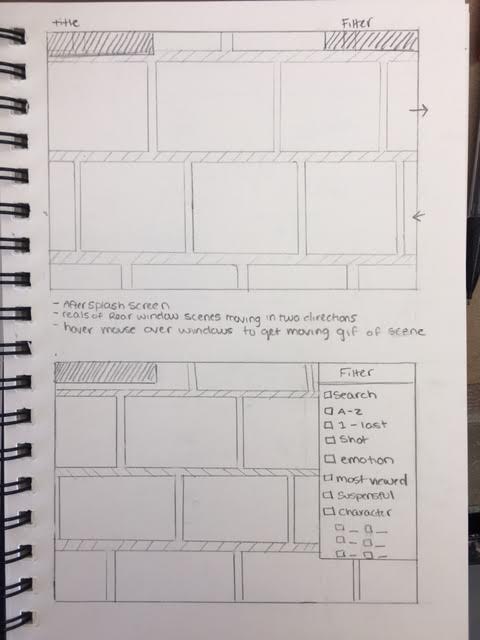 title
Filter
- After splash screen
- reals of Rear window scenes moving in two directions
- hover mouse over windows to get moving gif of scene
Filter
Search
A-Z
1-last
Shot
emotion
most viewed
Suspensful
Character